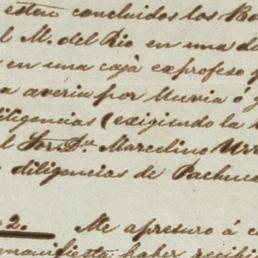 esten concluidos los Bo
l M. del Rio en una di
en una caja exprofeso
a averia por lluvia ó
diligencias (exigiendo la
l Sor. Dn. Marcelino Urr
diligencias de Pachuc
2. Me apresuro á c
manifiesta haber recibi